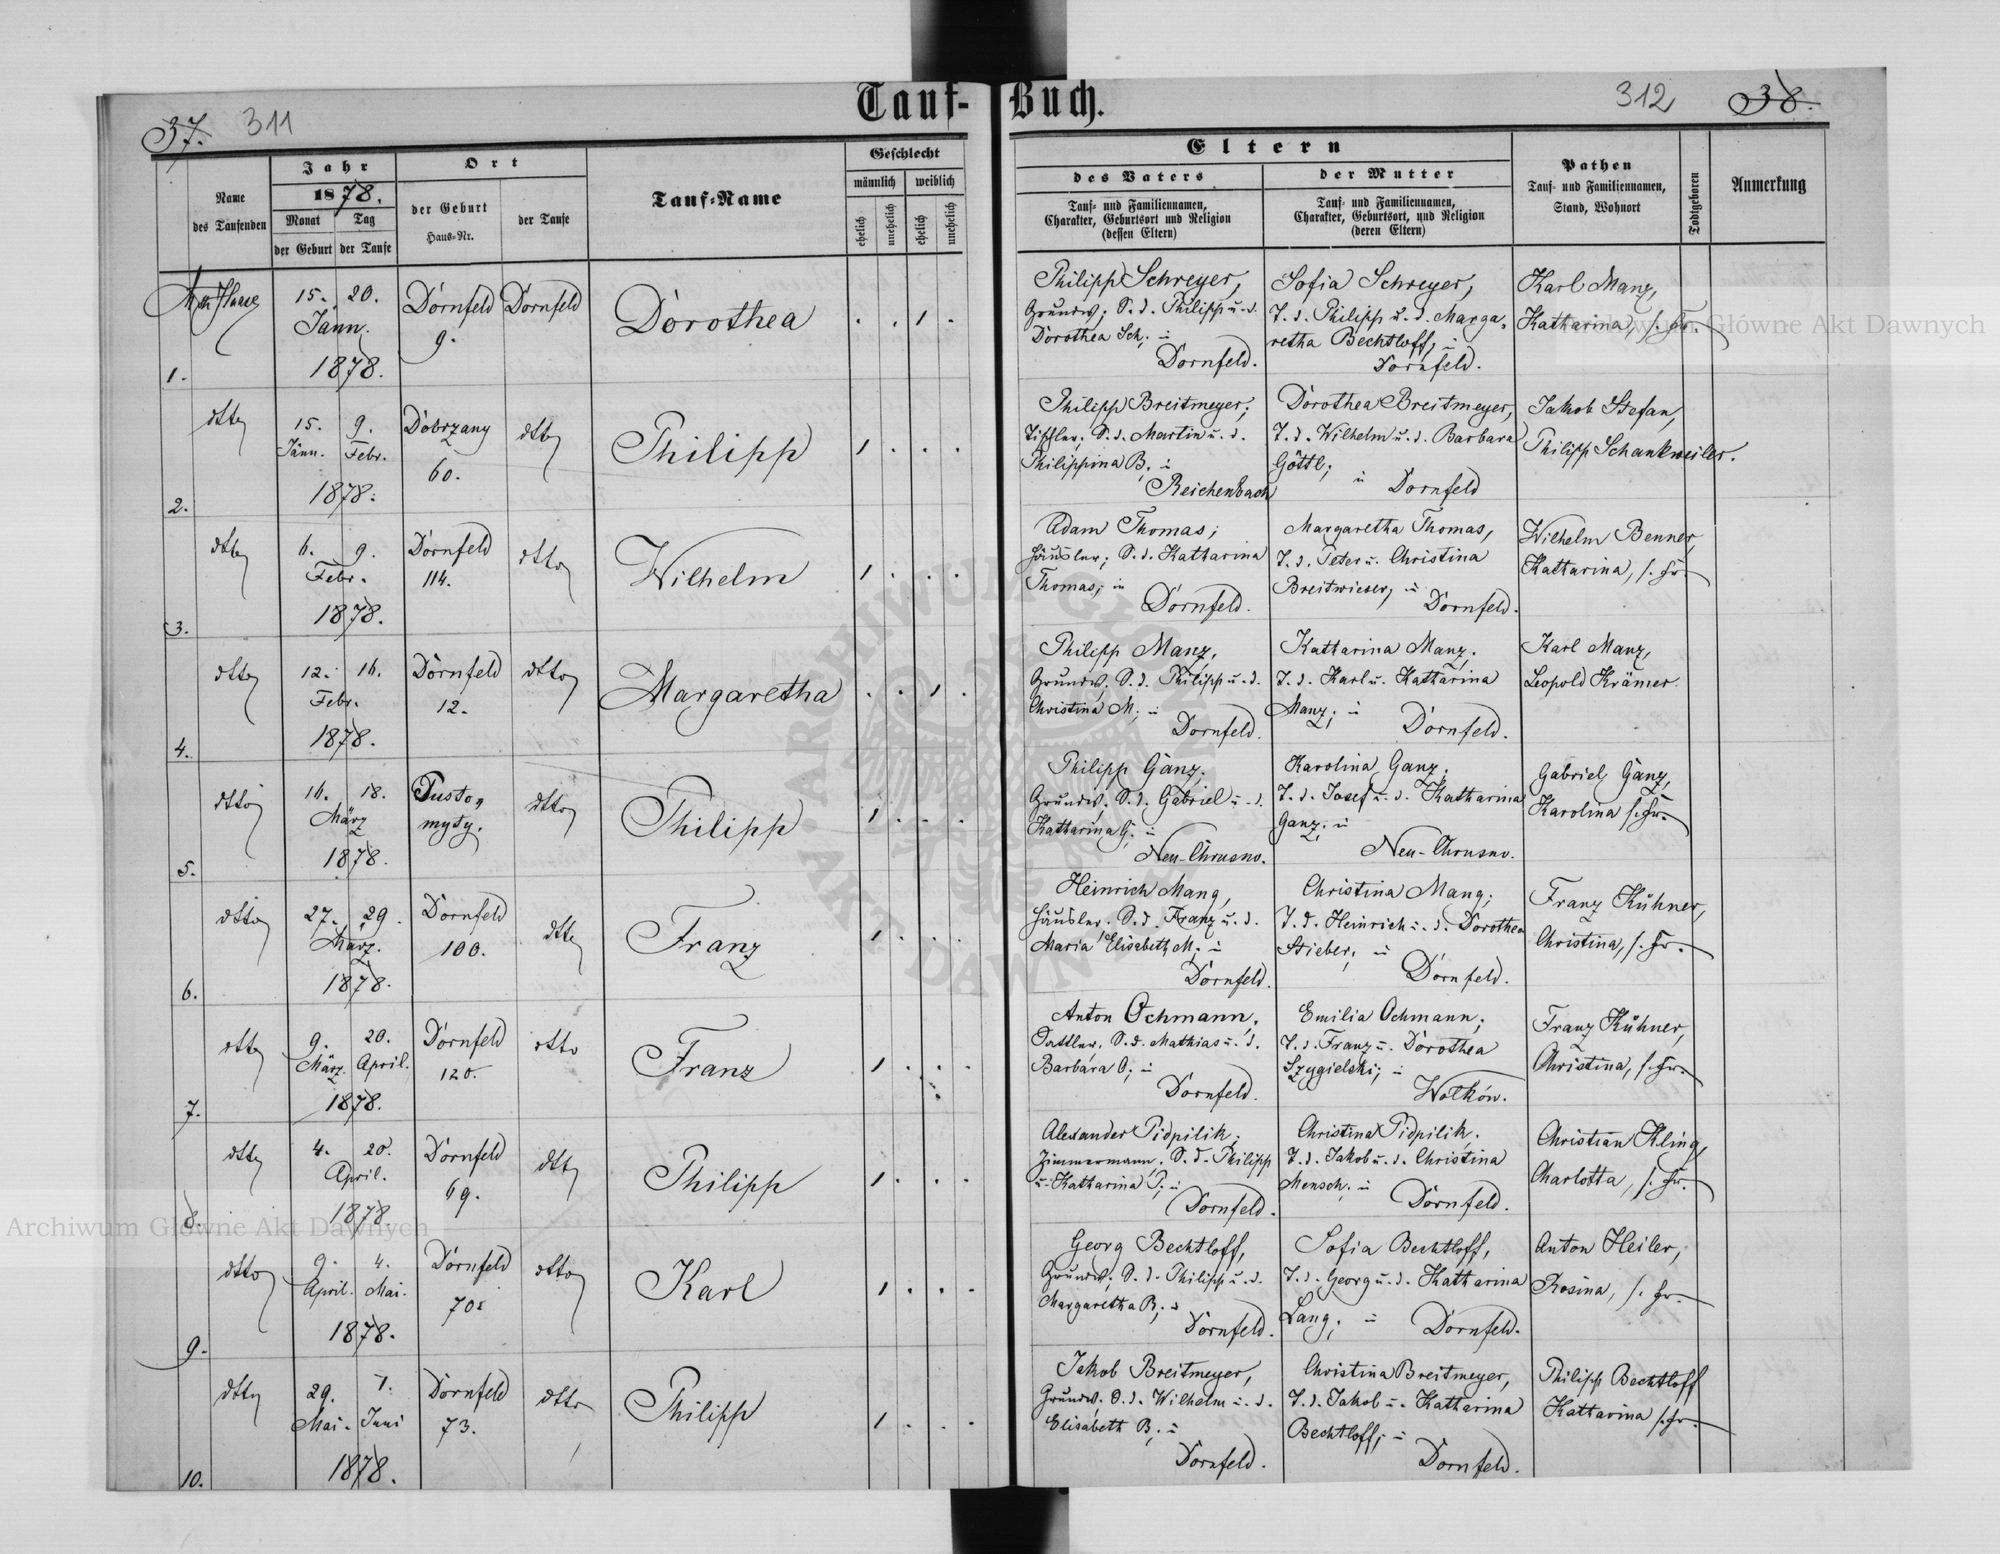 Tauf- Buch.
37. 311
312 38.
Name
des Taufenden
Jahr
1878.
Monat Tag
der Geburt der Taufe
Ort
der Geburt
Haus-Nr.
der Taufe
Tauf-Name
Geschlecht
männlich weiblich
ehelich unehelich ehelich unehelich
Eltern
des Vaters
Tauf- und Familiennamen,
Charakter, Geburtsort und Religion
(dessen Eltern)
der Mutter
Tauf- und Familiennamen,
Charakter, Geburtsort, und Religion
(deren Eltern)
Pathen
Tauf- und Familiennamen,
Stand, Wohnort
Todtgeboren
Anmerkung
1.
15. 20.
Jänn.
1878.
Dornfeld
9.
Dornfeld
Dorothea
1
Philipp Schreyer,
Grundw. S. d. Philipp u. d.
Dorothea Sch; in
Dornfeld.
Sofia Schreyer,
T. d. Philipp u. d. Marga-
retha Bechtloff, in
Dornfeld.
Karl Manz,
Katharina, s. Fr.
2.
dtto
15. 9.
Jänn. Febr.
1878.
Dobrzany
60.
dtto
Philipp
1
Philipp Breitmeyer;
Tischler; S. d. Martin u. d.
Philippina B; in
Reichenbach
Dorothea Breitmeyer,
T. d. Wilhelm u. d. Barbara
Göttl; in Dornfeld
Jakob Stefan,
Philipp Schankweiler.
3.
dtto
6. 9.
Febr.
1878.
Dornfeld
114.
dtto
Wilhelm
1
Adam Thomas;
Häusler; S. d. Katharina
Thomas; in
Dornfeld.
Margaretha Thomas,
T. d. Peter u. Christina
Breitwieser, in
Dornfeld.
Wilhelm Benner,
Katharina, s. Fr.
4.
dtto
12. 16.
Febr.
1878.
Dornfeld
12.
dtto
Margaretha
1
Philipp Manz,
Grundw. S. d. Philipp u. d.
Christina M; in
Dornfeld.
Katharina Manz,
T. d. Karl u. Katharina
Manz; in
Dornfeld.
Karl Manz,
Leopold Krämer.
5.
dtto
16. 18.
März
1878.
Pusto-
myty.
dtto
Philipp
1
Philipp Ganz.
Grundw. S. d. Gabriel u. d.
Katharina G; in
Neu-Chrusno.
Karolina Ganz,
T. d. Josef u. d. Katharina
Ganz; in
Neu-Chrusno.
Gabriel Ganz,
Karolina s. Fr.
6.
dtto
27. 29.
März.
1878.
Dornfeld
100.
dtto
Franz
1
Heinrich Mang,
Häusler. S. d. Franz u. d.
Maria Elisabeth M; in
Dornfeld.
Christina Mang;
T. d. Heinrich u. d. Dorothea
Stieber, in
Dornfeld.
Franz Kühner,
Christina, s. Fr.
7.
dtto
9. 20.
März. April.
1878.
Dornfeld
120.
dtto
Franz
1
Anton Ochmann;
Sattler. S. d. Mathias u. d.
Barbara O; in
Dornfeld.
Emilia Ochmann;
T. d. Franz u. Dorothea
Szygielski; in
Wolków.
Franz Kühner,
Christina, s. Fr.
8.
dtto
4. 20.
April.
1878.
Dornfeld
69.
dtto
Philipp
1
Alexander Pidpilik.
Zimmermann. S. d. Philipp
u. Katharina P; in
Dornfeld.
Christina Pidpilik.
T. d. Jakob u. d. Christina
Mensch; in
Dornfeld.
Christian Kling,
Charlotta, s. Fr.
9.
dtto
9. 4.
April. Mai.
1878.
Dornfeld
70.
dtto
Karl
1
Georg Bechtloff,
Grundw; S. d. Philipp u. d.
Margaretha B; in
Dornfeld.
Sofia Bechtloff,
T. d. Georg u. d. Katharina
Lang; in
Dornfeld.
Anton Heiler,
Rosina, s. Fr.
10.
dtto
29. 1.
Mai. Juni
1878.
Dornfeld
73.
dtto
Philipp
1
Jakob Breitmeyer,
Grundw. S. d. Wilhelm u. d.
Elisabeth B; in
Dornfeld.
Christina Breitmeyer,
T. d. Jakob u. Katharina
Bechtloff; in
Dornfeld.
Philipp Bechtloff
Katharina s. Fr.
Archiwum Główne Akt Dawnych
Archiwum Główne Akt Dawnych